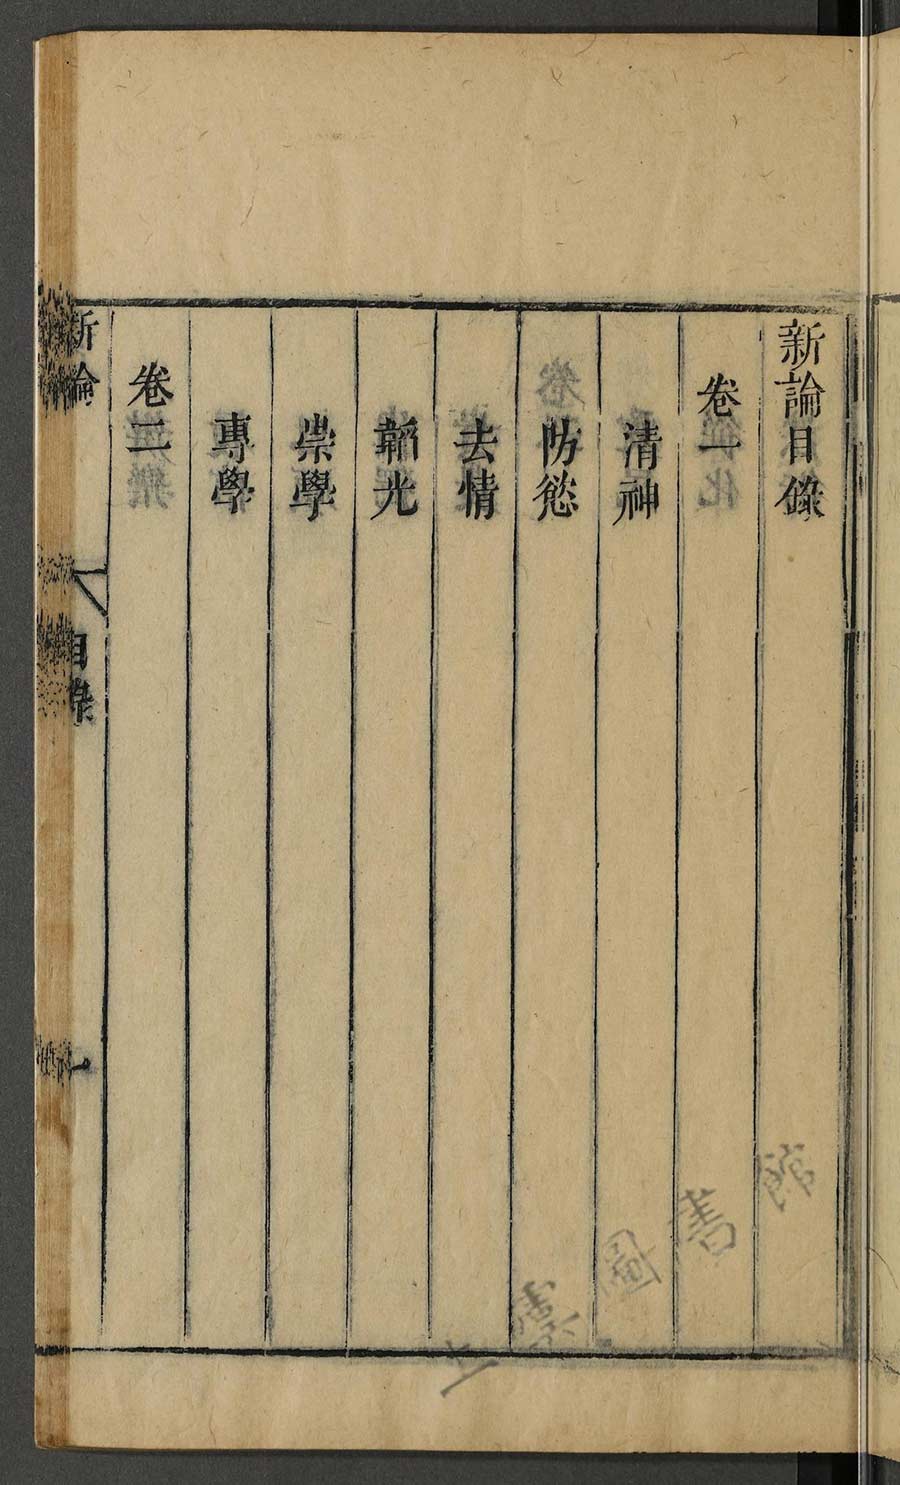 新論目錄
卷一
清神
防慾
去情
韜光
崇學
專學
卷二
新論
目錄
一
圖書館